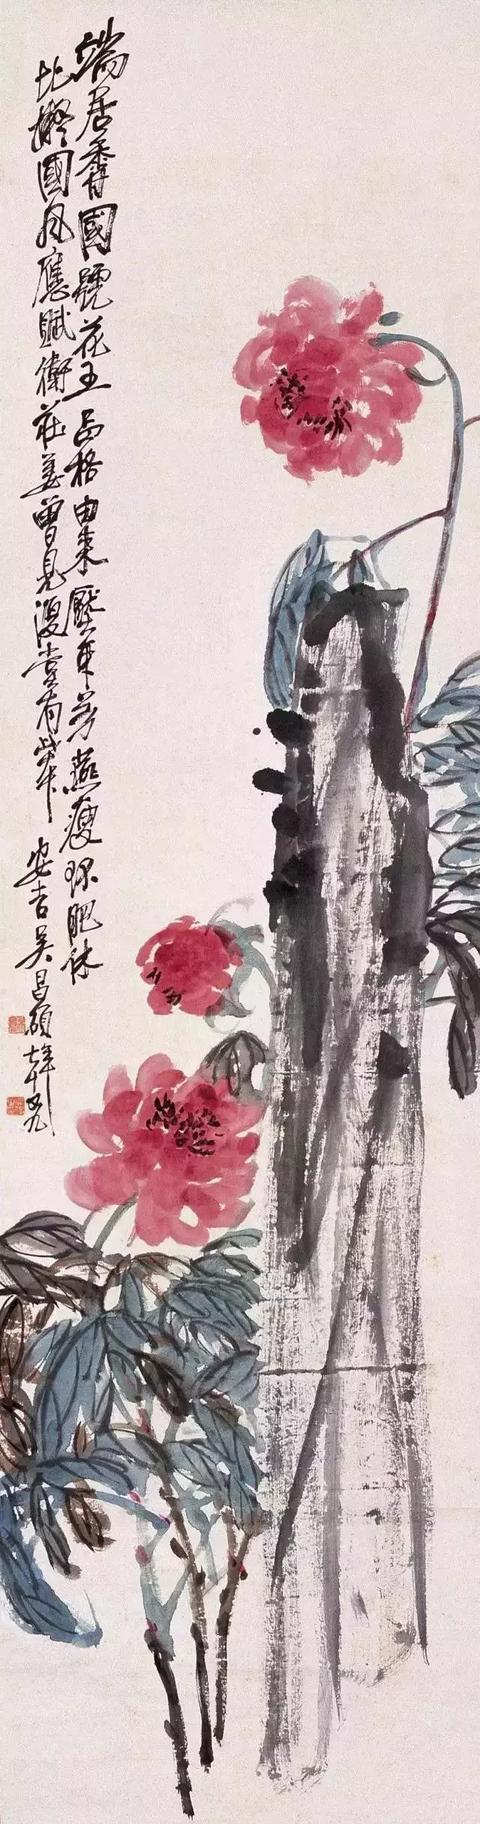 端居香國號花王品格由來壓眾芳燕瘦環肥休
比擬國風應賦衛莊姜曾見復堂有此安吉吳昌碩